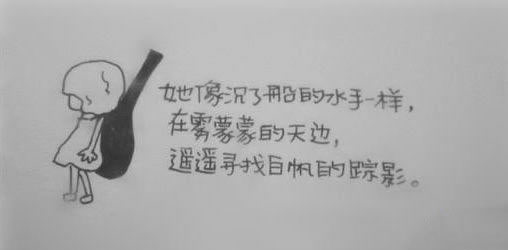 她像沉了船的水手一样，
在雾蒙蒙的天边，
遥遥寻找白帆的踪影。